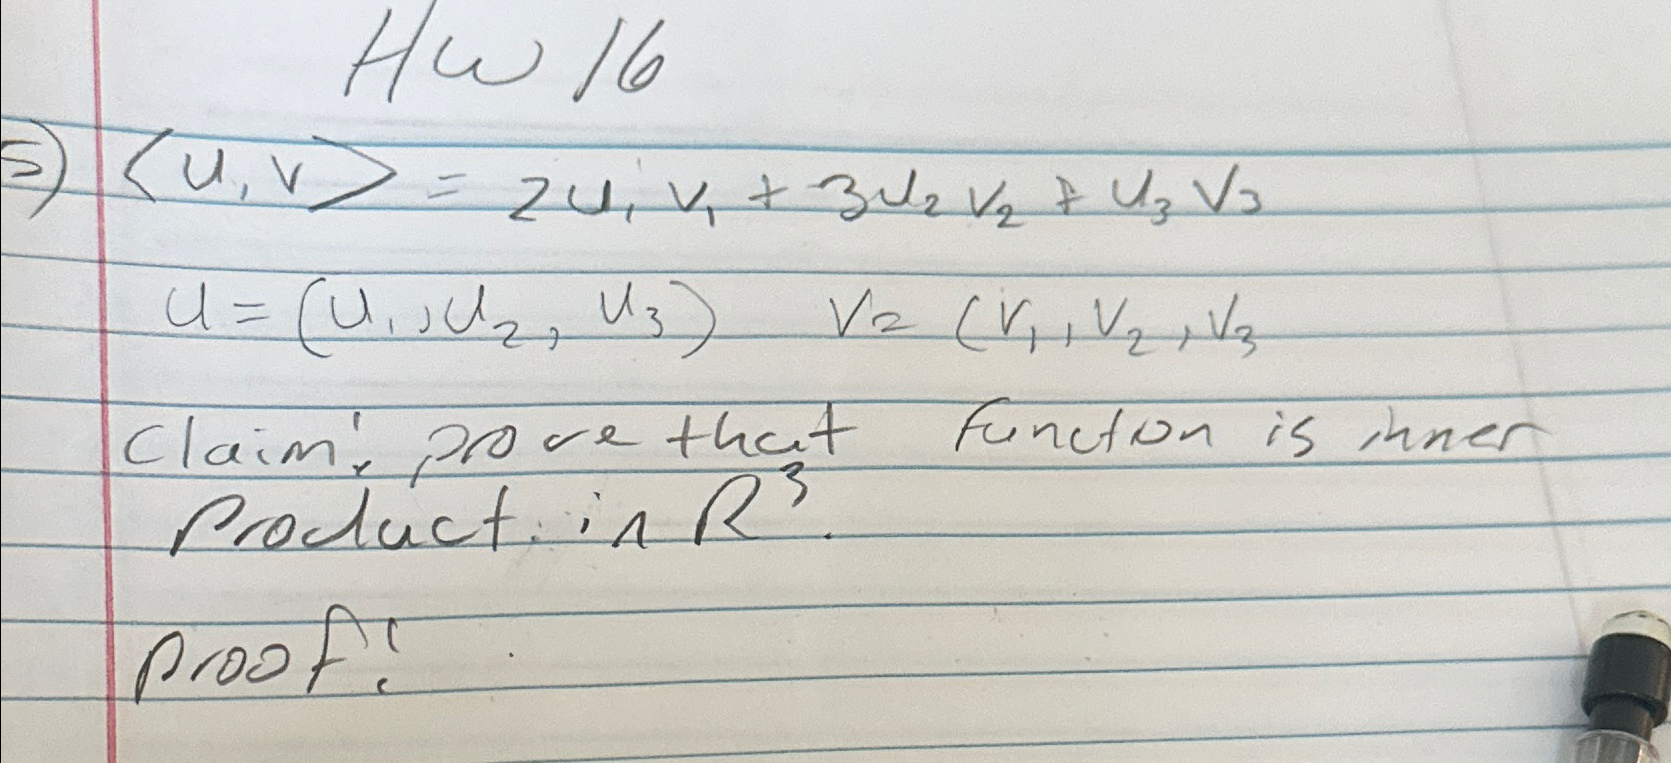 HW 16
5) <u, v> = 2u₁v₁ + 3u₂v₂ + u₃v₃
u = (u₁, u₂, u₃) v = (v₁, v₂, v₃
Claim: prove that function is inner
product. in R³.
proof: